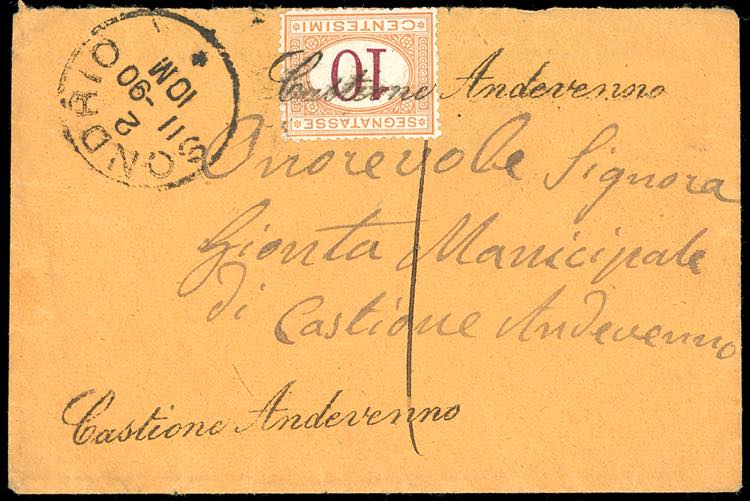 SONDRIO
11
2-90
10M
CENTESIMI
10
SEGNATASSE
Castione Andevenno
Onorevole Signora
Gionta Manicipale
di Castione Andevenno
Castione Andevenno